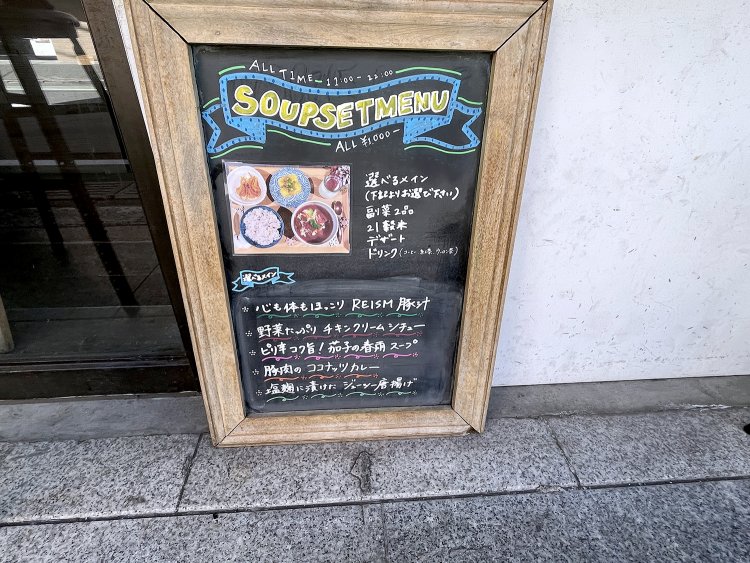 ALL TIME 11:00~22:00
SOUPSETMENU
ALL ¥1,000-
選べるメイン
(下記よりお選び下さい)
副菜2品
21穀米
デザート
ドリンク(コーヒー 紅茶 ウーロン茶)
選べるメイン
心も体もほっこり REISM 豚汁
野菜たっぷり チキンクリームシチュー
ピリ辛コク旨! 茄子の春雨スープ
豚肉の ココナッツカレー
塩麹に漬けた ジューシー唐揚げ